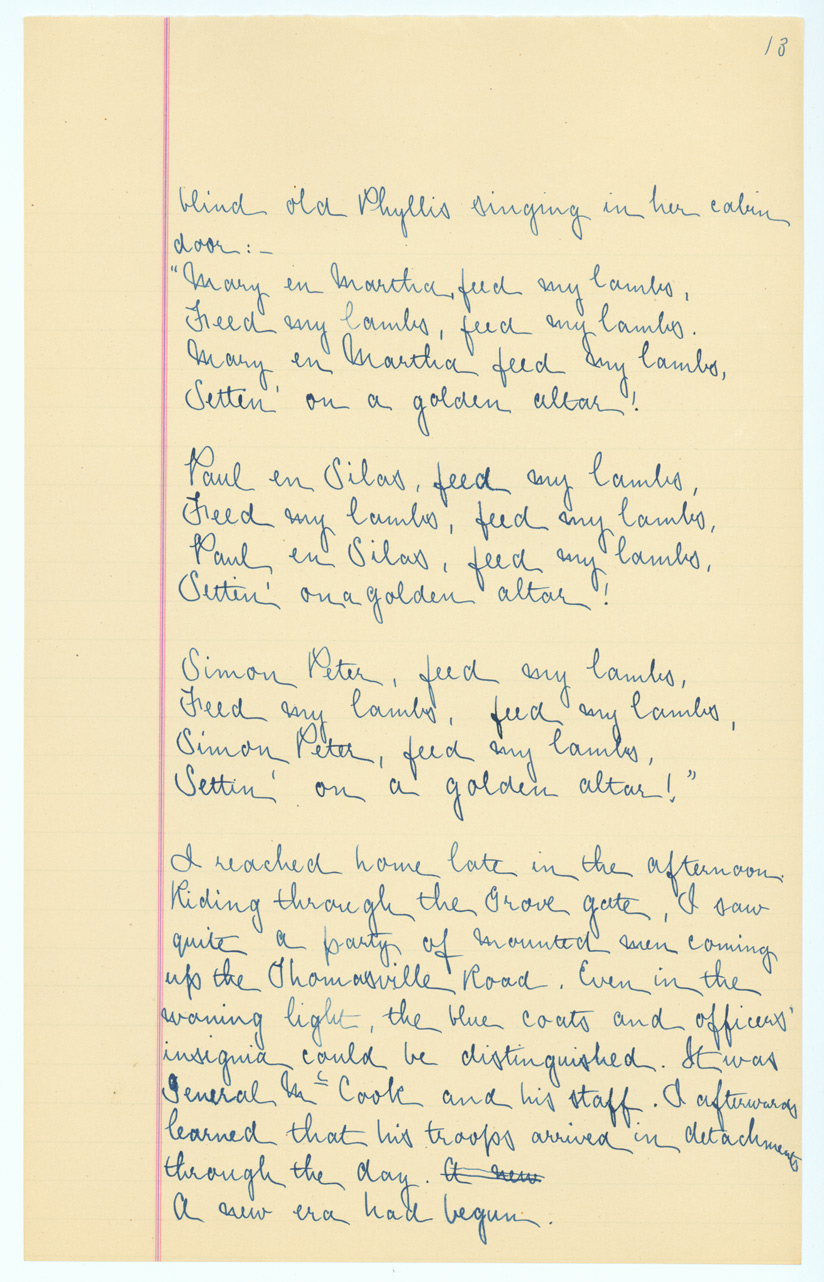 13
blind old Phyllis singing in her cabin
door:-
"Mary en Martha, feed my lambs,
Feed my lambs, feed my lambs.
Mary en Martha feed my lambs,
Settin' on a golden altar!
Paul en Silas, feed my lambs,
Feed my lambs, feed my lambs,
Paul en Silas, feed my lambs,
Settin' on a golden altar!
Simon Peter, feed my lambs,
Feed my lambs, feed my lambs,
Simon Peter, feed my lambs,
Settin' on a golden altar!"
I reached home late in the afternoon.
Riding through the Grove gate, I saw
quite a party of mounted men coming
up the Thomasville Road. Even in the
waning light, the blue coats and officers'
insignia could be distinguished. It was
General Mc Cook and his staff. I afterwards
learned that his troops arrived in detachments
through the day. A new
A new era had begun.